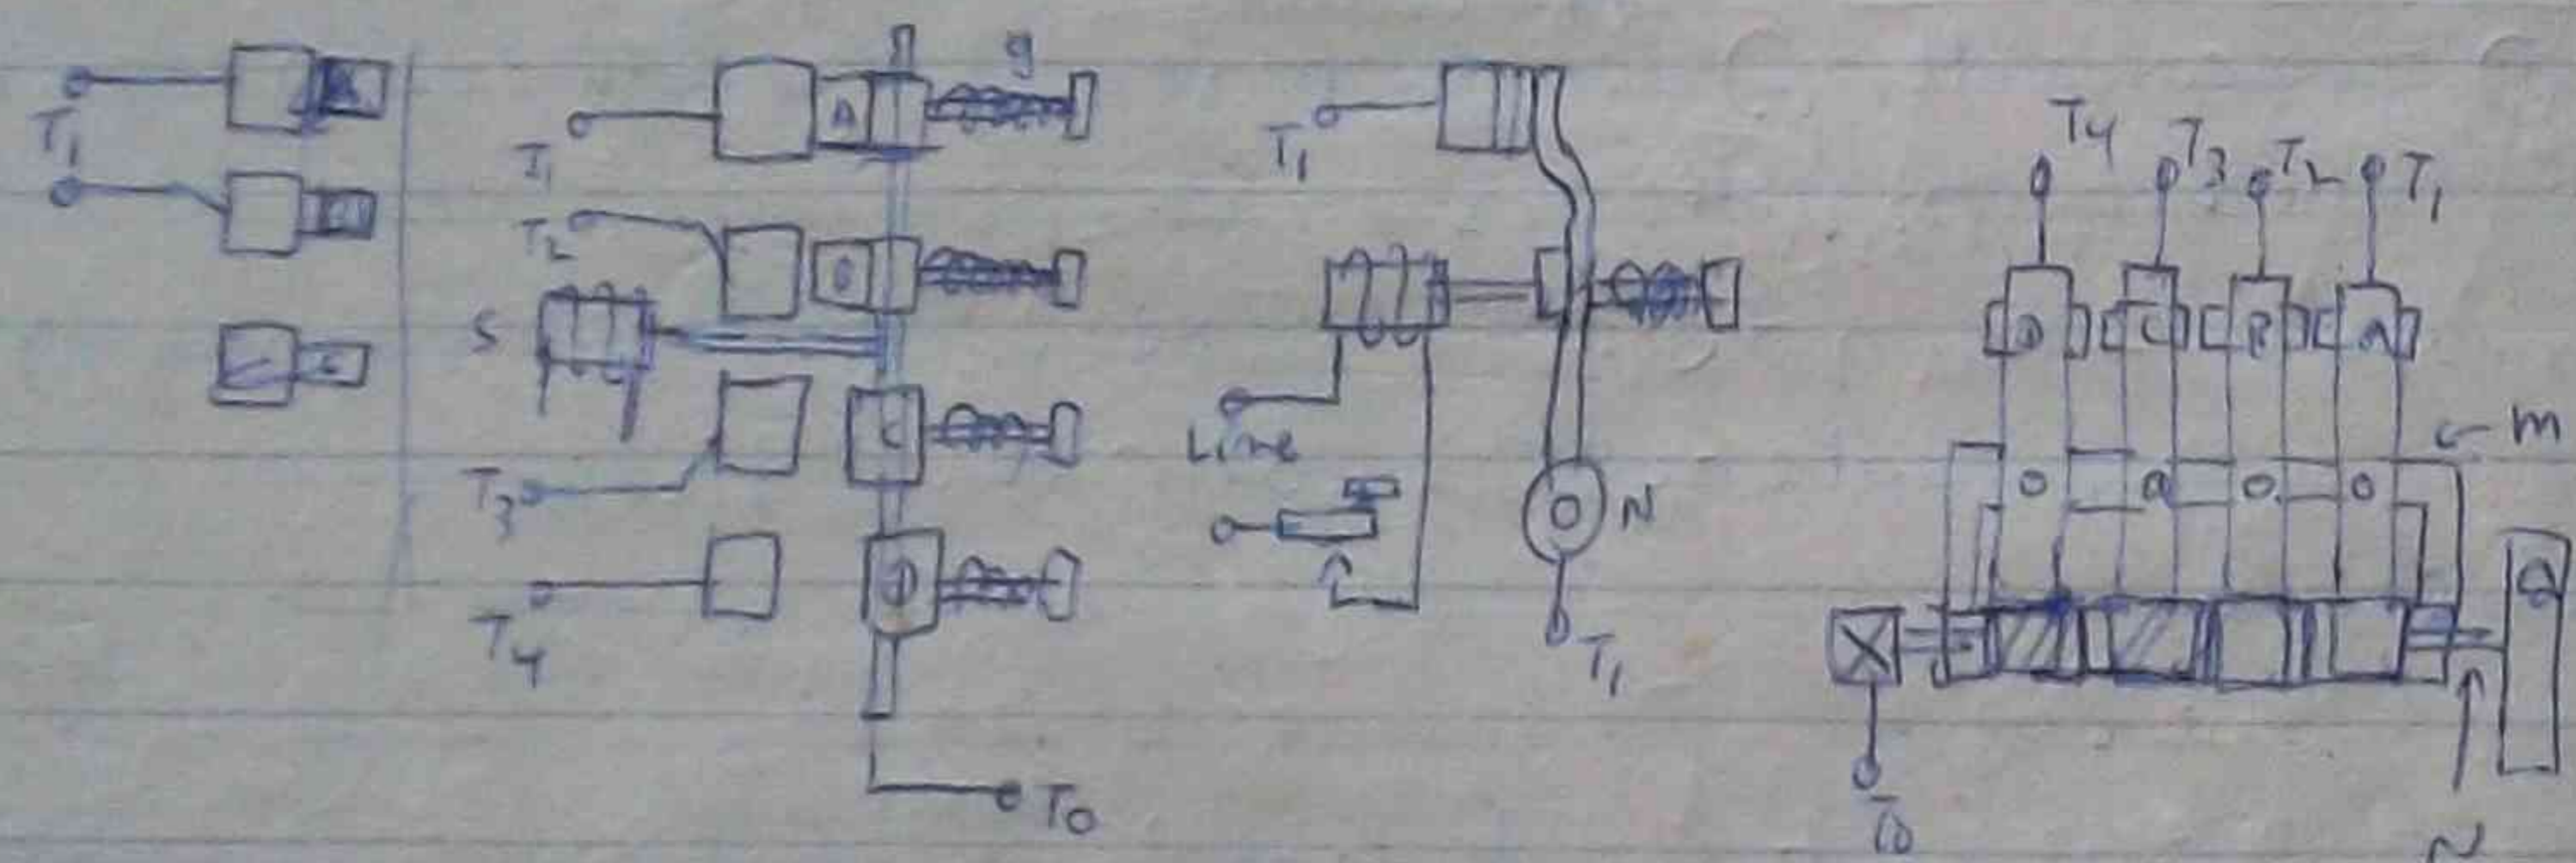 T1
g
A
T1
T2
B
S
C
T3
D
T4
T0
T1
Line
N
T1
T4
T3
T2
T1
D
C
B
A
m
T0
N